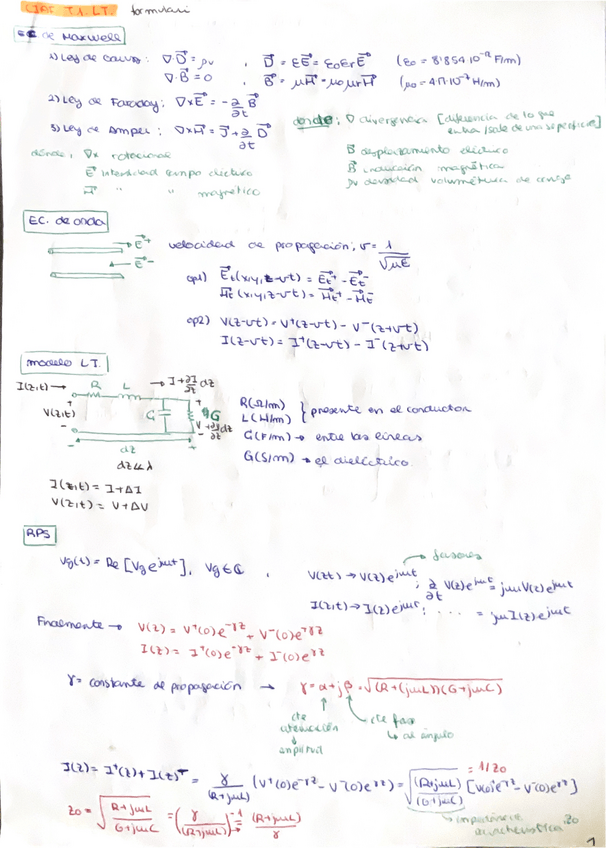 CIAF T.1. L.T. formulari
EC de Maxwell
1) Ley de Gauss: ∇·D⃗ = ρv , D⃗ = εE⃗ = ε0εrE⃗ (ε0 = 8.854·10⁻¹² F/m)
∇·B⃗ = 0 , B⃗ = μH⃗ = μ0μrH⃗ (μ0 = 4π·10⁻⁷ H/m)
2) Ley de Faraday: ∇×E⃗ = -∂/∂t B⃗
3) Ley de Amper: ∇×H⃗ = J⃗ + ∂/∂t D⃗
donde: ∇ divergencia [diferencia de lo que entra/sale de una superficie]
dónde, ∇× rotacional
E⃗ intensidad campo eléctrico
H⃗ " " magnético
D⃗ desplazamiento eléctrico
B⃗ inducción magnética
ρv densidad volumétrica de carga
EC. de onda
E⃗⁺
E⃗⁻
velocidad de propagación; v = 1/√με
op1) E⃗t(x,y,z-vt) = E⃗t⁺ - E⃗t⁻
H⃗t(x,y,z-vt) = H⃗t⁺ - H⃗t⁻
op2) V(z-vt) = V⁺(z-vt) - V⁻(z+vt)
I(z-vt) = I⁺(z-vt) - I⁻(z+vt)
modelo L.T.
I(z,t) → R L → I + ∂I/∂t dz
V(z,t) G G V + ∂/∂z dz
dz
dz ≪ λ
R(Ω/m)
L(H/m) } presente en el conductor
G(F/m) → entre las líneas
G(S/m) → el dieléctrico
I(z,t) = I + ΔI
V(z,t) = V + ΔV
RPS
Vg(t) = Re [Vg e^jωt], Vg ∈ ℂ ,
fasores
V(z,t) → V(z)e^jωt ; ∂/∂t V(z)e^jωt = jωV(z)e^jωt
I(z,t) → I(z)e^jωt ; ..... = jωI(z)e^jωt
Finalmente → V(z) = V⁺(0)e^-γz + V⁻(0)e^+γz
I(z) = I⁺(0)e^-γz + I⁻(0)e^γz
γ = constante de propagación → γ = α + jβ = √(R+(jωL))(G+jωC)
cte atenuación
amplitud
cte fase
↳ al ángulo
I(z) = I⁺(z) + I(z)⁻ = γ/(R+jωL) (V⁺(0)e^-γz - V⁻(0)e^γz) = √(R+jωL)/(G+jωC) [V(0)⁺e^-γz - V⁻(0)e^γz]
= 1/Z0
Z0 = √R+jωL/G+jωC = (γ/(R+jωL))⁻¹ → (R+jωL)/γ
impedancia característica Z0
1